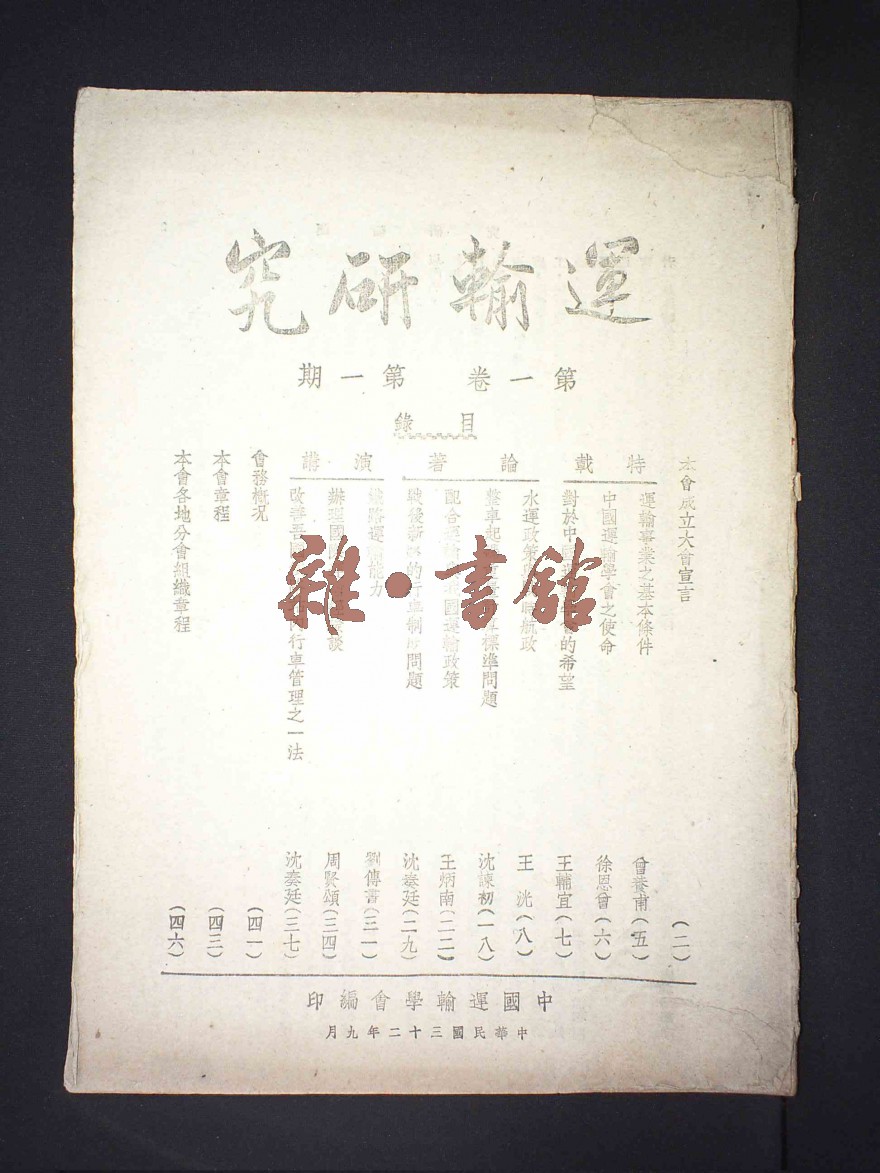 運輸研究
第一卷 第一期
目錄
本會成立大會宣言 (二)
特載
運輸事業之基本條件 曾養甫 (五)
中國運輸學會之使命 徐恩曾 (六)
對於中國 的希望 王輔宜 (七)
論著
水運政策 航政 王洸 (八)
整車起 標準問題 沈諫初 (一八)
配合 國運輸政策 王炳南 (二二)
戰後 的行車制度問題 沈奏廷 (二九)
演講
鐵路運輸能力 劉傳書 (三一)
辦理國 談 周賢頌 (三四)
改善吾國 行車管理之一法 沈奏廷 (三七)
會務概況 (四一)
本會章程 (四三)
本會各地分會組織章程 (四六)
中國運輸學會編印
中華民國三十二年九月
雜·書館